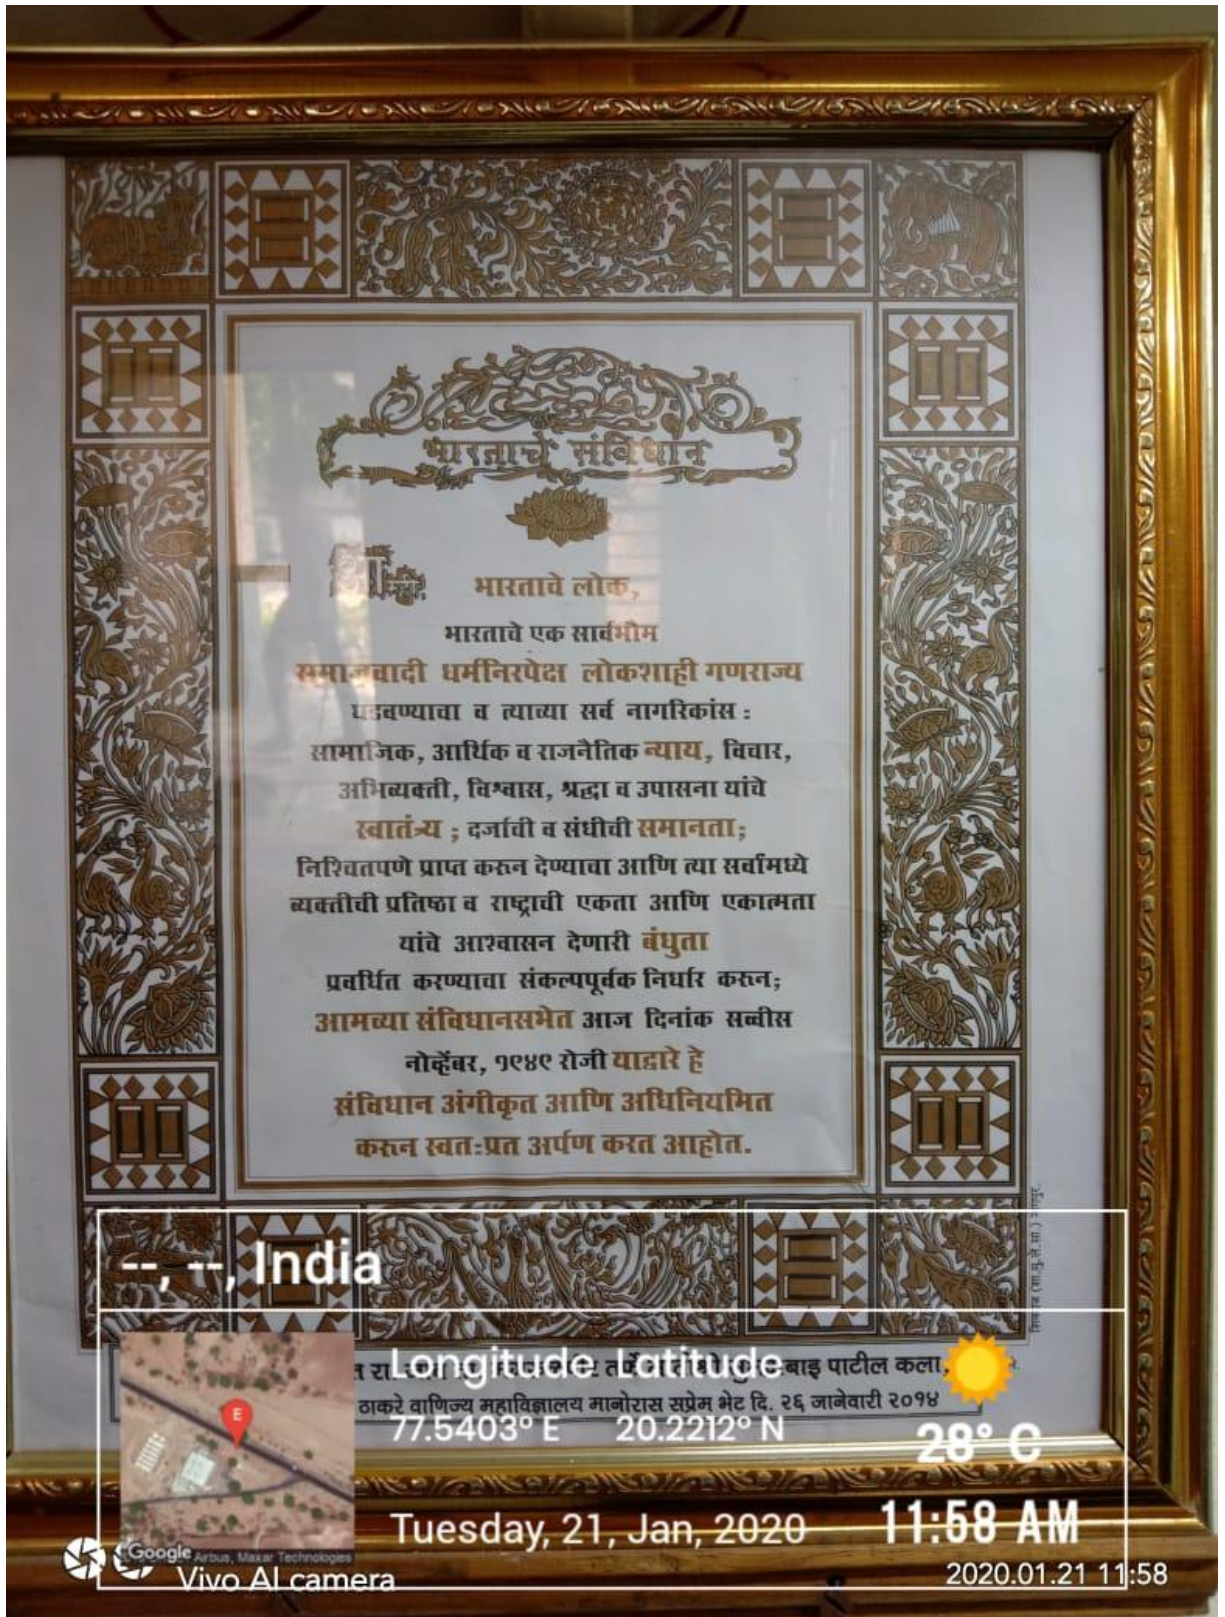 भारताचे संविधान
आम्ही भारताचे लोक,
भारताचे एक सार्वभौम
समाजवादी धर्मनिरपेक्ष लोकशाही गणराज्य
घडवण्याचा व त्याच्या सर्व नागरिकांस :
सामाजिक, आर्थिक व राजनैतिक न्याय, विचार,
अभिव्यक्ती, विश्वास, श्रद्धा व उपासना यांचे
स्वातंत्र्य ; दर्जाची व संधीची समानता;
निश्चितपणे प्राप्त करुन देण्याचा आणि त्या सर्वांमध्ये
व्यक्तीची प्रतिष्ठा व राष्ट्राची एकता आणि एकात्मता
यांचे आश्वासन देणारी बंधुता
प्रवर्धित करण्याचा संकल्पपूर्वक निर्धार करुन;
आमच्या संविधानसभेत आज दिनांक सव्वीस
नोव्हेंबर, १९४९ रोजी याद्वारे हे
संविधान अंगीकृत आणि अधिनियमित
करुन स्वतःप्रत अर्पण करत आहोत.
--, --, India
पाटील कला
ठाकरे वाणिज्य महाविज्ञालय मानोरास सप्रेम भेट दि. २६ जानेवारी २०१४
Longitude Latitude
77.5403° E 20.2212° N
28° C
Tuesday, 21, Jan, 2020 11:58 AM
E
Google Airbus, Maxar Technologies
Vivo AI camera
2020.01.21 11:58